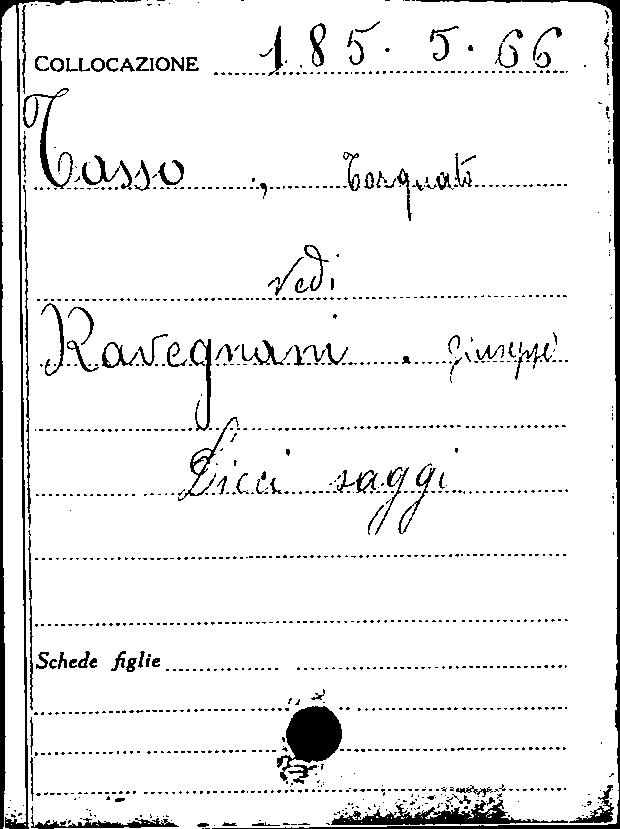 COLLOCAZIONE 185. 5. 66
Tasso, Torquato
vedi
Ravegnani. Giuseppe
Dieci saggi
Schede figlie